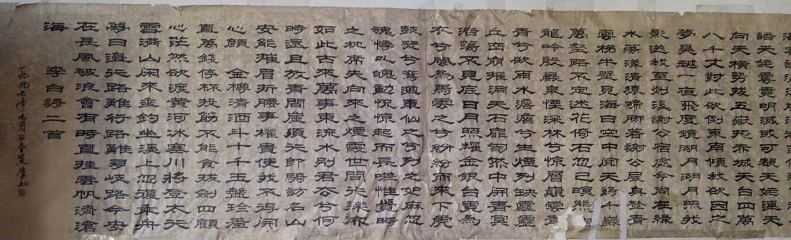 語天姥雲霓明滅或可覩天姥連天
向天橫勢拔五嶽掩赤城天台四萬
八千丈對此欲倒東南傾我欲因之
夢吳越一夜飛度鏡湖月湖月照我
影送我至剡溪謝公宿處今尚在綠
水蕩漾清猿啼脚著謝公屐身登青
雲梯半壁見海日空中聞天鷄千巖
萬壑路不定迷花倚石忽已暝熊咆
龍吟殷巖泉慄深林兮驚層巔雲青
青兮欲雨水澹澹兮生煙列缺霹靂
丘巒崩摧洞天石扉訇然中開青冥
浩蕩不見底日月照耀金銀臺霓爲
衣兮風爲馬雲之君兮紛紛而來下虎
鼓瑟兮鸞迴車仙之人兮列如麻忽
魂悸以魄動怳驚起而長嗟惟覺時
之枕席失向來之煙霞世間行樂亦
如此古來萬事東流水別君去兮何
時還且放青間崖須行即騎訪名山
安能摧眉折腰事權貴使我不得開
心顏 金樽清酒斗十千玉盤珍羞
直萬錢停杯投筯不能食拔劍四顧
心茫然欲渡黃河冰塞川將登太行
雪滿山閑來垂釣坐溪上忽復乘舟
夢日邊行路難行路難多岐路今安
在長風破浪會有時直挂雲帆濟滄
海 李白詩二首
一九九七年九月